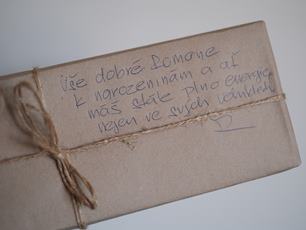 Vše dobré Romane
k narozeninám a ať
máš stále plno energie
nejen ve svých